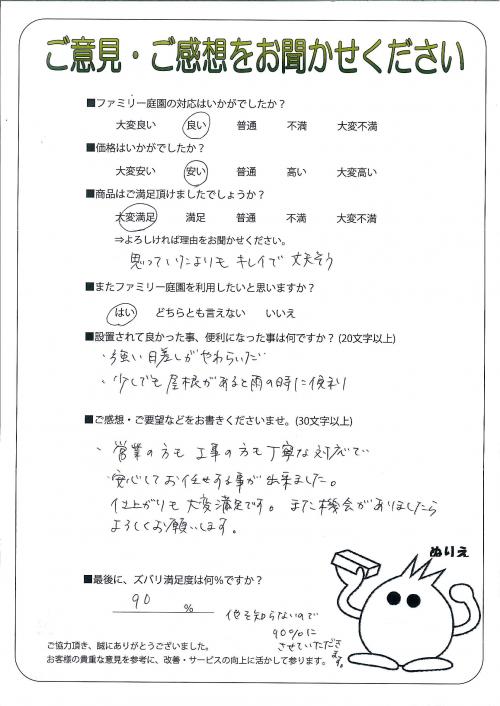 ご意見・ご感想をお聞かせください
■ファミリー庭園の対応はいかがでしたか？
大変良い 良い 普通 不満 大変不満
■価格はいかがでしたか？
大変安い 安い 普通 高い 大変高い
■商品はご満足頂けましたでしょうか？
大変満足 満足 普通 不満 大変不満
⇒よろしければ理由をお聞かせください。
思っていたよりも キレイで 丈夫そう
■またファミリー庭園を利用したいと思いますか？
はい どちらとも言えない いいえ
■設置されて良かった事、便利になった事は何ですか？(20文字以上)
・強い日差しがやわらいだ
・少しでも屋根があると雨の時に便利
■ご感想・ご要望などをお書きくださいませ。(30文字以上)
・営業の方も 工事の方も 丁寧な対応で
安心してお任せする事が出来ました。
仕上がりも大変満足です。また機会がありましたら
よろしくお願いします。
ぬりえ
■最後に、ズバリ満足度は何%ですか？
90 %
他を知らないので
90%に
させていただきます。
ご協力頂き、誠にありがとうございました。
お客様の貴重な意見を参考に、改善・サービスの向上に活かして参ります。